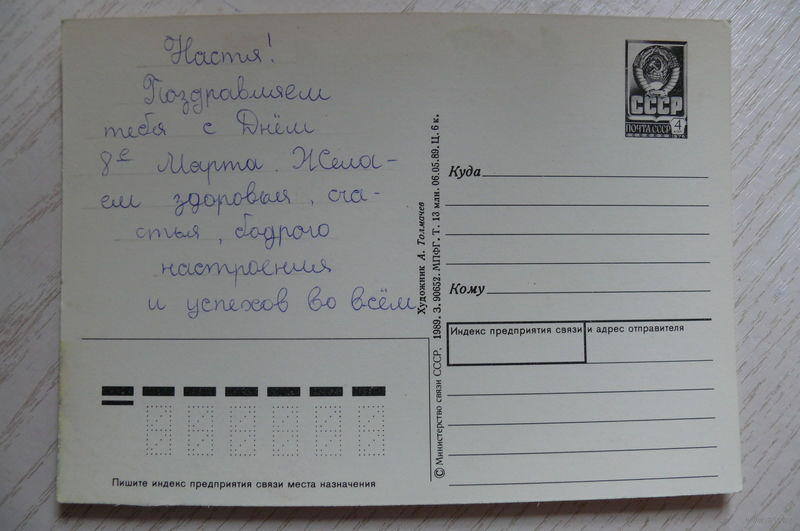 Настя!
Поздравляем
тебя с Днём
8е Марта. Жела-
ем здоровья, сча-
стья, бодрого
настроения
и успехов во всём
Пишите индекс предприятия связи места назначения
© Министерство связи СССР. 1989. З. 90652. МПФГ. Т. 13 млн. 06.05.89. Ц. 6 к.
Художник А. Толмачев
СССР
ПОЧТА СССР 4
Куда
Кому
Индекс предприятия связи и адрес отправителя